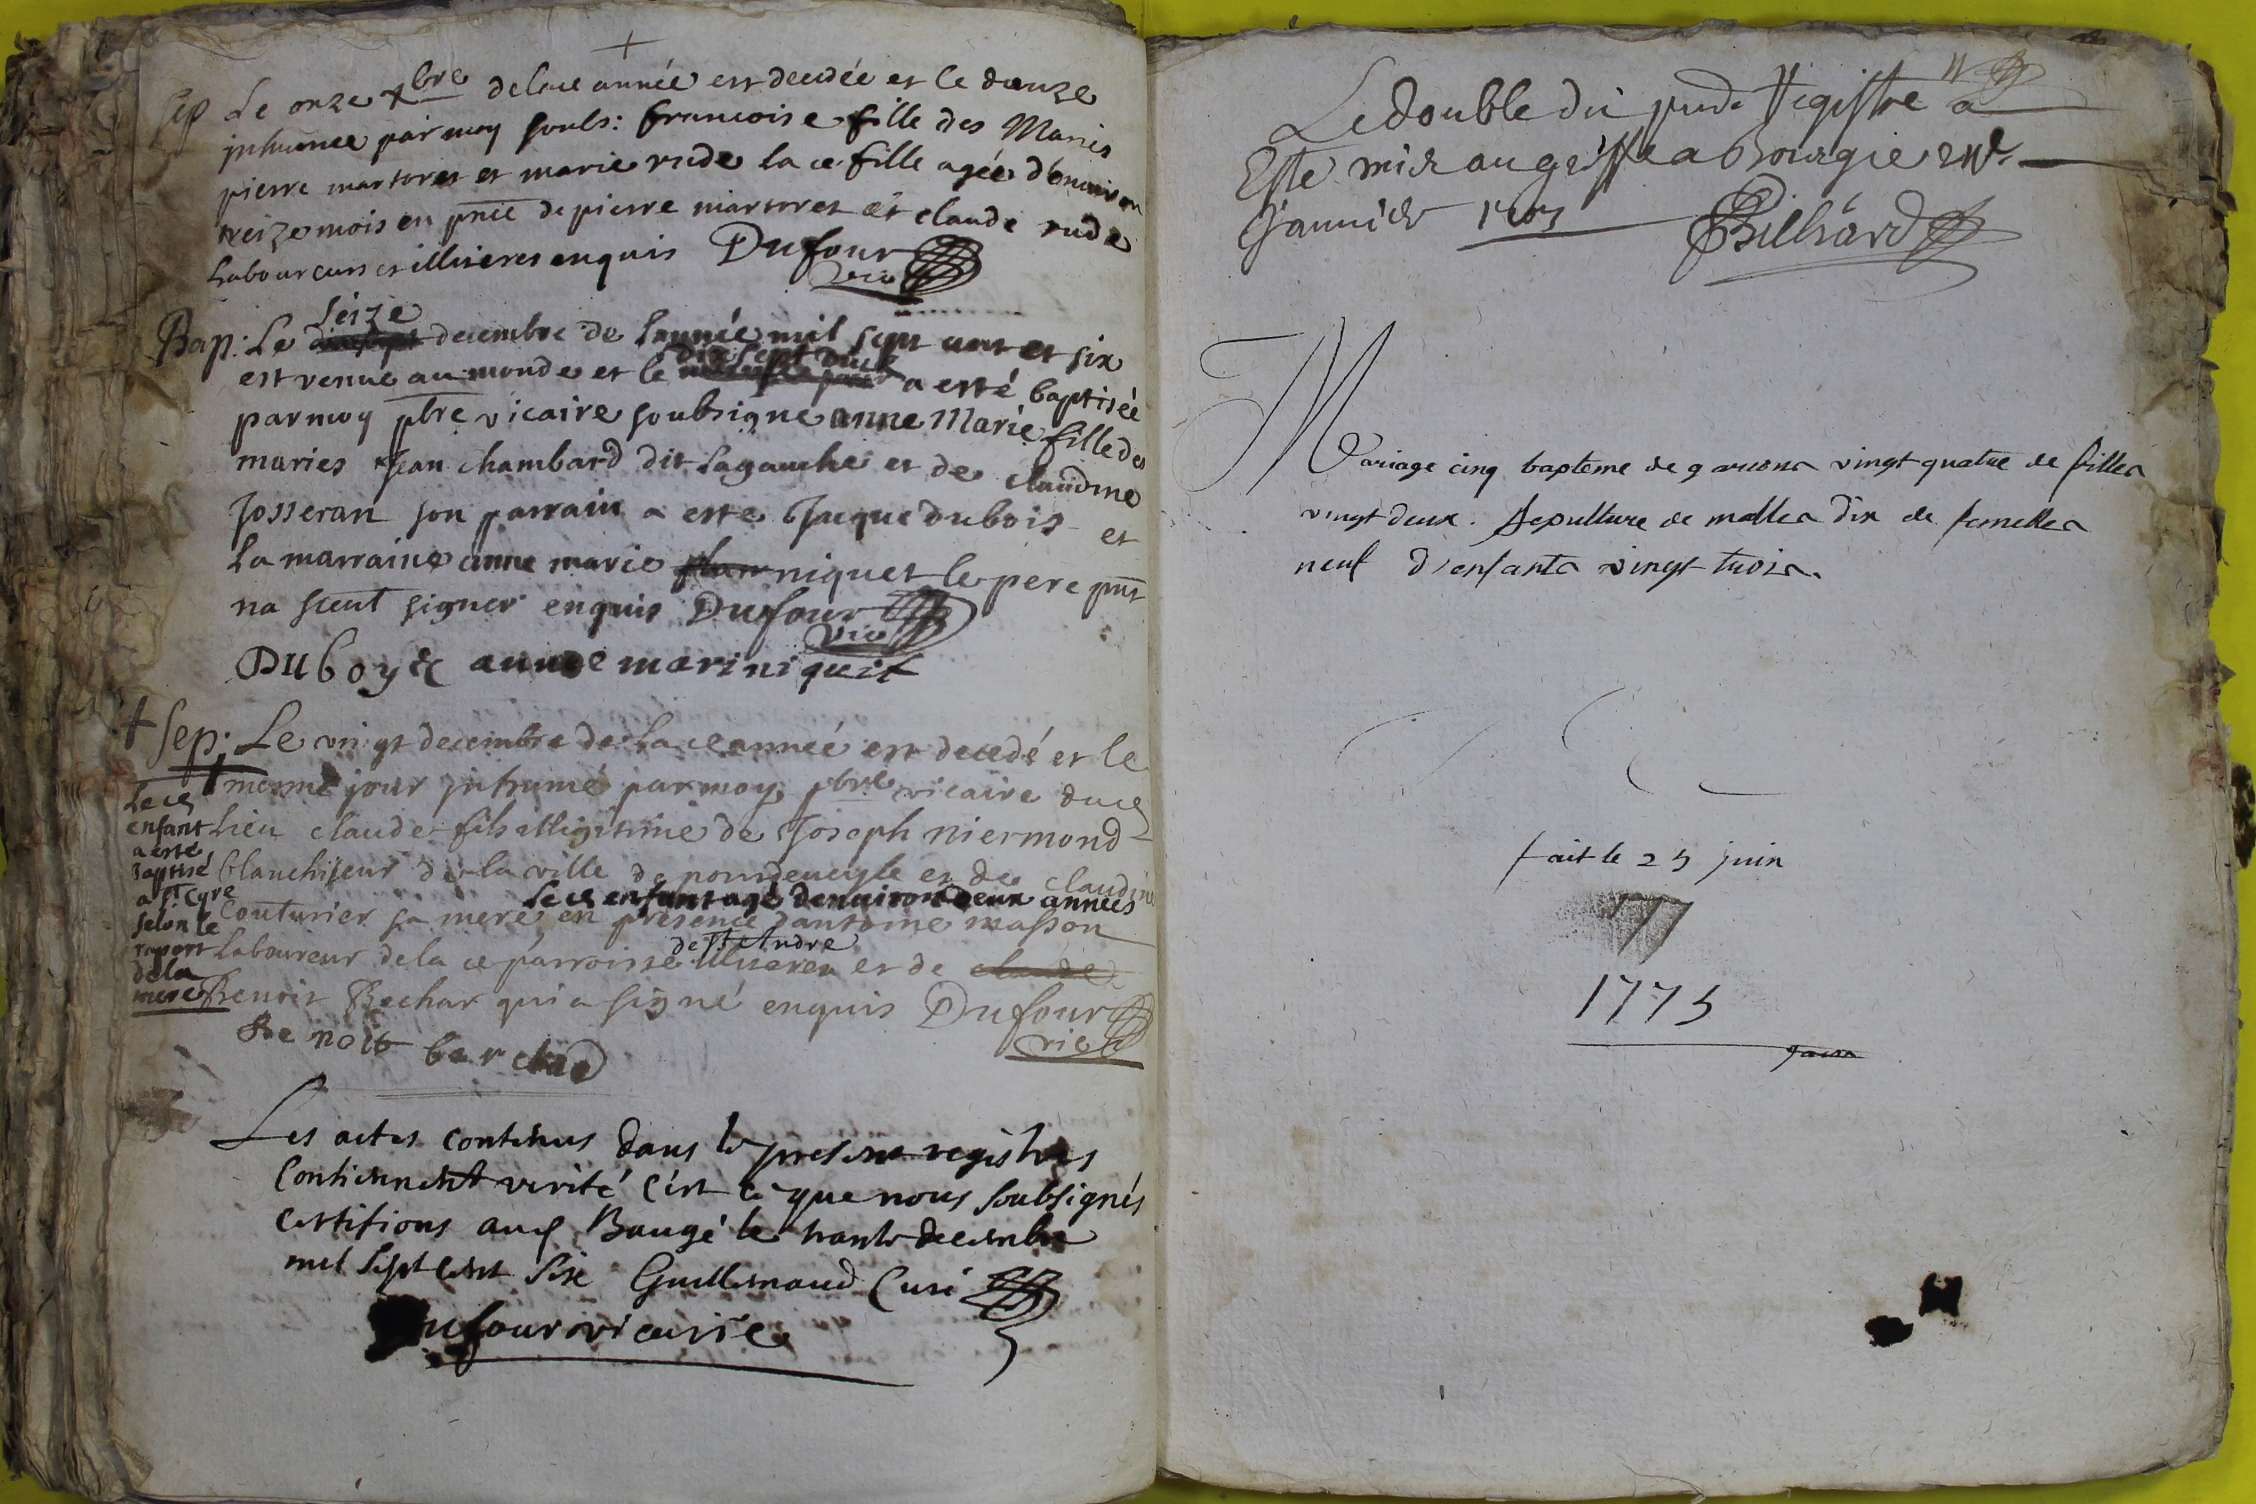 Sep Le onze xbre de lace année est decedée et le douze
jnhumée par moy soubs: francoise fille des Maries
pierre martoret et marie rude la ce fille agée d'enuiron
treize mois en pnce de pierre martoret et claude rude
Laboureurs et illiteres enquis Dufour
vic
Bap: Le seize decembre de Lannée mil sept cent et six
est venue au monde et le dix sept a esté baptisée
par moy pbre vicaire soubsigne anne Marie fille des
maries jean chambard dit Lagauche et de claudine
Josseran son parrain a este Jaque dubois et
La marraine anne marie niquet le pere pnt
na sceut signer enquis Dufour
vic
DUboys anne mari niquit
+ Sep: Le vingt decembre de la ce année est decedé et le
mesme jour jnhumé par moy pbre vicaire du ce
Lieu claude fils illigitime de Joseph niermond
blanchiseur de la ville de pondeueyle et de claudine
Le ce enfant agé denuiron deux années
couturier sa mere, en présence dantoine masson
de St Andre
Laboureur de la ce parroisse et de
Benoit Bechar qui a signé enquis Dufour
vic
Le ce
enfant
a esté
Baptisé
a St Cyre
selon le
raport
de la
mere
Benoit
Les actes contenus dans le present registres
Contiennent verité c'est ce que nous soubsignés
certifions aud Baugé le trante decembre
mil sept cent six Guillemaud Curé
Dufour vicaire
Le double du pnt Registre a
Esté mis au greffe a Bourg le
Janvier 1707 Billiard
Mariage cinq baptême de garcons vingt quatre de filles
vingt deux. Sepulture de malles dix de femelles
neuf d'enfants vingt trois.
fait le 25 juin
177
1775